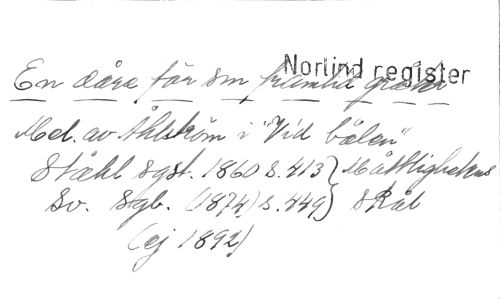 Norlind register
En dåre får sin framtid gräva
Mel. av Åhlström i "Vid bålen"
Ståhl Sgst. 1860 s. 413 } Måttlighetens
Sv. Sgb. (1874) s. 449 } Skål
(ej 1892)